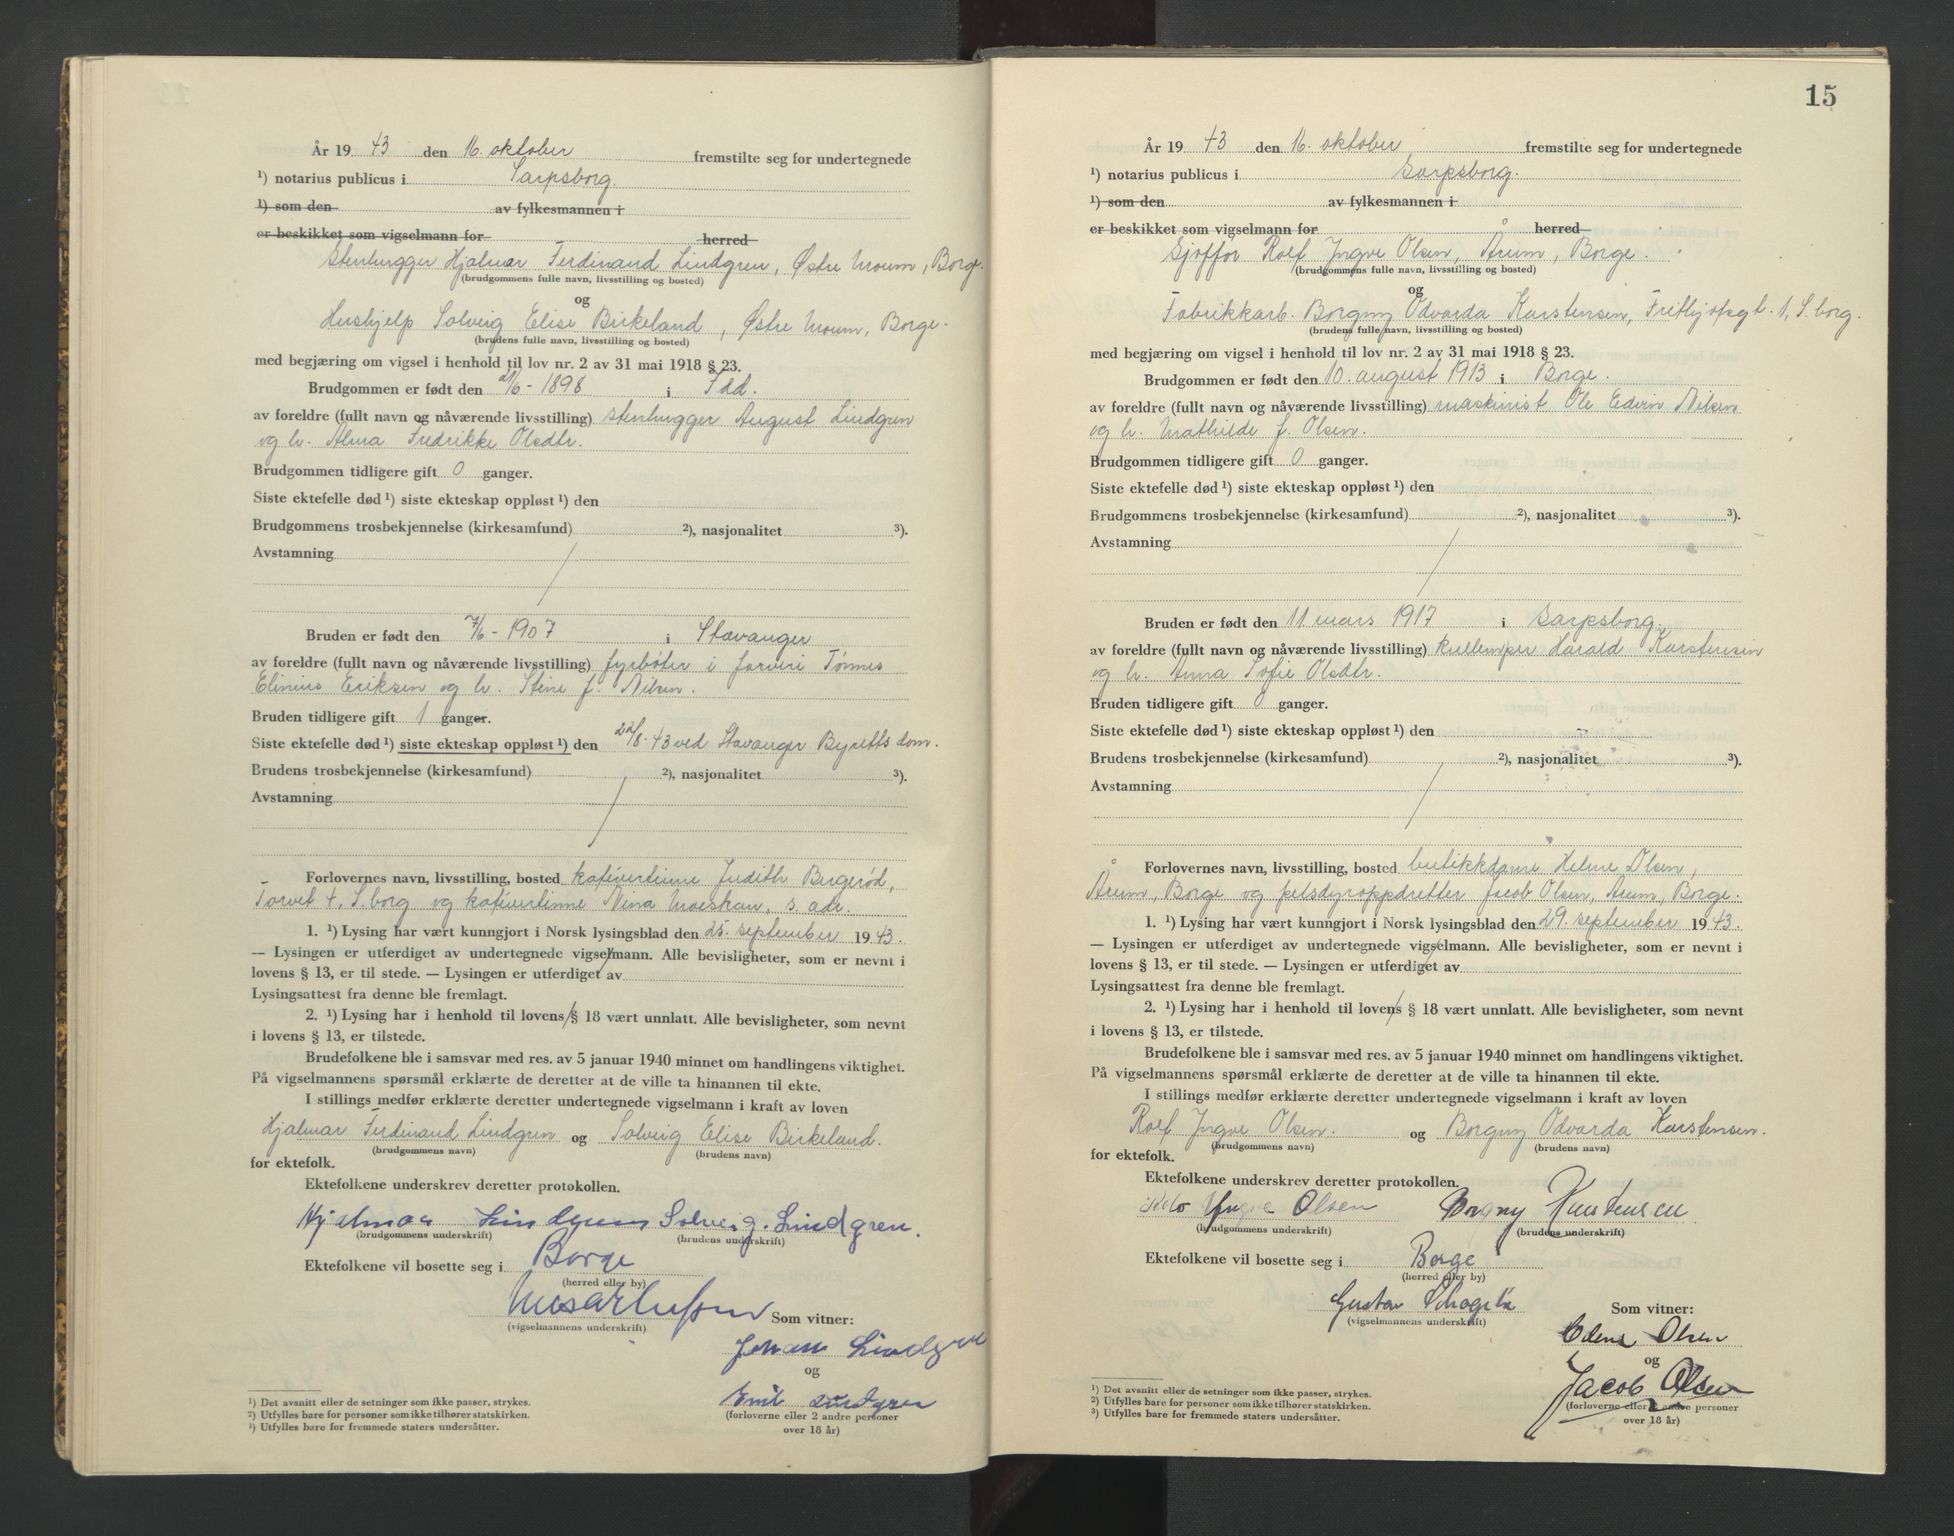 År 19 43 den 16. oktober fremstilte seg for undertegnede
¹) notarius publicus i Sarpsborg.
¹) som den av fylkesmannen i
er beskikket som vigselmann for herred
Stenhugger Hjalmar Ferdinand Lindgren, Østre Moum, Borge.
(brudgommens fulle navn, livsstilling og bosted)
og
Hushjelp Solveig Elise Birkeland, Østre Moum, Borge.
(brudens fulle navn, livsstilling og bosted)
med begjæring om vigsel i henhold til lov nr. 2 av 31 mai 1918 § 23.
Brudgommen er født den /6 - 1898 i Idd.
av foreldre (fullt navn og nåværende livsstilling) stenhugger August Lindgren
og h. Alma Fredrikke Olsdtr.
Brudgommen tidligere gift 0 ganger.
Siste ektefelle død ¹) siste ekteskap oppløst ¹) den
Brudgommens trosbekjennelse (kirkesamfund) ²), nasjonalitet ³).
Avstamning
Bruden er født den 7/6 - 1907 i Stavanger
av foreldre (fullt navn og nåværende livsstilling) fyrbøter i farveri Tønnes
Elinius Eriksen og h. Stine f. Nilsen.
Bruden tidligere gift 1 ganger.
Siste ektefelle død ¹) siste ekteskap oppløst ¹) den 22/8-43 ved Stavanger Byretts dom.
Brudens trosbekjennelse (kirkesamfund) ²), nasjonalitet ³).
Avstamning
Forlovernes navn, livsstilling, bosted kafévertinne Judith Bugerød,
Torvet 4, S.borg og kafévertinne Nina Moeskau, s. adr.
1. ¹) Lysing har vært kunngjort i Norsk lysingsblad den 25. september 19 43.
— Lysingen er utferdiget av undertegnede vigselmann. Alle bevisligheter, som er nevnt i
lovens § 13, er til stede. — Lysingen er utferdiget av
Lysingsattest fra denne ble fremlagt.
2. ¹) Lysing har i henhold til lovens § 18 vært unnlatt. Alle bevisligheter, som nevnt
i lovens § 13, er tilstede.
Brudefolkene ble i samsvar med res. av 5 januar 1940 minnet om handlingens viktighet.
På vigselmannens spørsmål erklærte de deretter at de ville ta hinannen til ekte.
I stillings medfør erklærte deretter undertegnede vigselmann i kraft av loven
Hjalmar Ferdinand Lindgren og Solveig Elise Birkeland.
(brudgommens navn) (brudens navn)
for ektefolk.
Ektefolkene underskrev deretter protokollen.
Hjalmar Lindgren Solveig. Lindgren.
(brudgommens underskrift) (brudens underskrift)
Ektefolkene vil bosette seg i Borge
(herred eller by)
Som vitner:
(vigselmannens underskrift)
Johan Lindgren
og
Emil Lindgren
(forloverne eller 2 andre personer
over 18 år)
¹) Det avsnitt eller de setninger som ikke passer, strykes.
²) Utfylles bare for personer som ikke tilhører statskirken.
³) Utfylles bare for fremmede staters undersåtter.
15
År 19 43 den 16. oktober fremstilte seg for undertegnede
¹) notarius publicus i Sarpsborg.
¹) som den av fylkesmannen i
er beskikket som vigselmann for herred
Sjåffør Rolf Yngve Olsen, Årum, Borge.
(brudgommens fulle navn, livsstilling og bosted)
og
Fabrikkarb. Borgny Odvarda Karstensen, Fritjofsgt. 1, S.borg.
(brudens fulle navn, livsstilling og bosted)
med begjæring om vigsel i henhold til lov nr. 2 av 31 mai 1918 § 23.
Brudgommen er født den 10. august 1913 i Borge.
av foreldre (fullt navn og nåværende livsstilling) maskinist Ole Edvin Nilsen
og h. Mathilde f. Olsen.
Brudgommen tidligere gift 0 ganger.
Siste ektefelle død ¹) siste ekteskap oppløst ¹) den
Brudgommens trosbekjennelse (kirkesamfund) ²), nasjonalitet ³).
Avstamning
Bruden er født den 11. mars 1917 i Sarpsborg.
av foreldre (fullt navn og nåværende livsstilling) kullemper Harald Karstensen
og h. Anna Sofie Olsdtr.
Bruden tidligere gift 0 ganger.
Siste ektefelle død ¹) siste ekteskap oppløst ¹) den
Brudens trosbekjennelse (kirkesamfund) ²), nasjonalitet ³).
Avstamning
Forlovernes navn, livsstilling, bosted butikkdame Helene Olsen,
Årum, Borge og pelsdyroppdretter Jacob Olsen, Årum, Borge.
1. ¹) Lysing har vært kunngjort i Norsk lysingsblad den 29. september 19 43.
— Lysingen er utferdiget av undertegnede vigselmann. Alle bevisligheter, som er nevnt i
lovens § 13, er til stede. — Lysingen er utferdiget av
Lysingsattest fra denne ble fremlagt.
2. ¹) Lysing har i henhold til lovens § 18 vært unnlatt. Alle bevisligheter, som nevnt
i lovens § 13, er tilstede.
Brudefolkene ble i samsvar med res. av 5 januar 1940 minnet om handlingens viktighet.
På vigselmannens spørsmål erklærte de deretter at de ville ta hinannen til ekte.
I stillings medfør erklærte deretter undertegnede vigselmann i kraft av loven
Rolf Yngve Olsen. og Borgny Odvarda Karstensen.
(brudgommens navn) (brudens navn)
for ektefolk.
Ektefolkene underskrev deretter protokollen.
Yngve Olsen Borgny Karstensen
(brudgommens underskrift) (brudens underskrift)
Ektefolkene vil bosette seg i Borge
(herred eller by)
Gustav Som vitner:
(vigselmannens underskrift)
Olsen
og
Jacob Olsen
(forloverne eller 2 andre personer
over 18 år)
¹) Det avsnitt eller de setninger som ikke passer, strykes.
²) Utfylles bare for personer som ikke tilhører statskirken.
³) Utfylles bare for fremmede staters undersåtter.